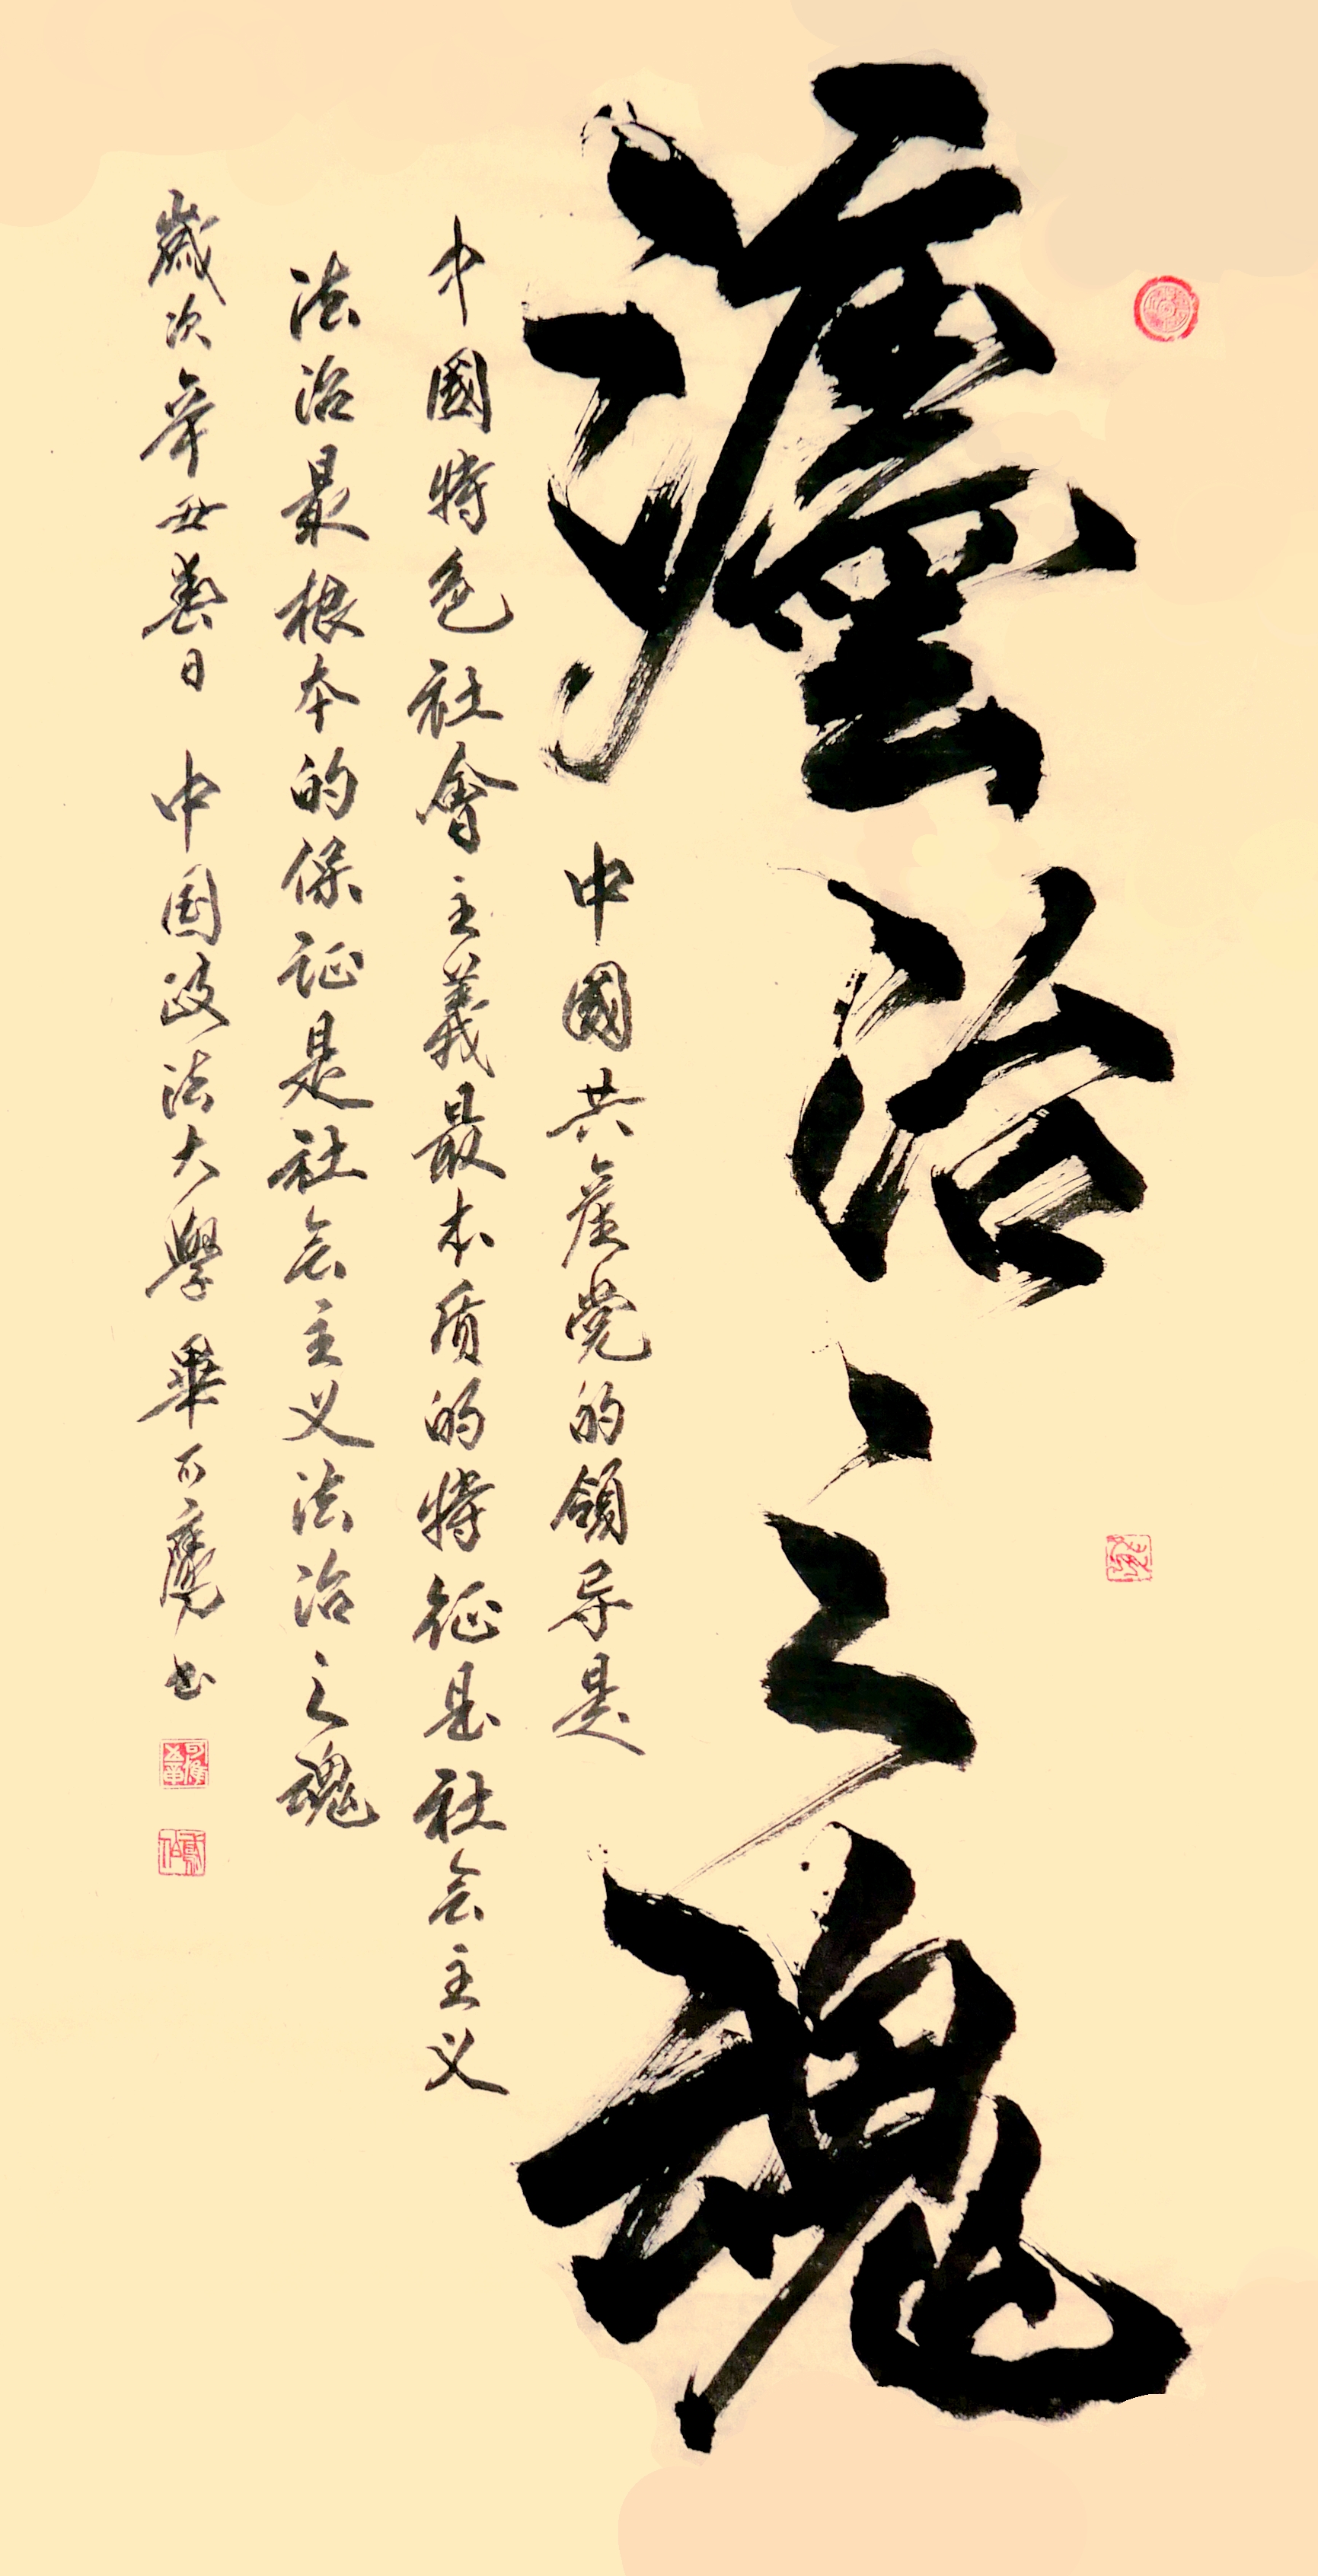 灋治之魂
中國共産党的領导是
中國特色社會主義最本质的特征是社会主义
法治最根本的保证是社会主义法治之魂
歲次辛丑春日 中国政法大學 畢可鹰书